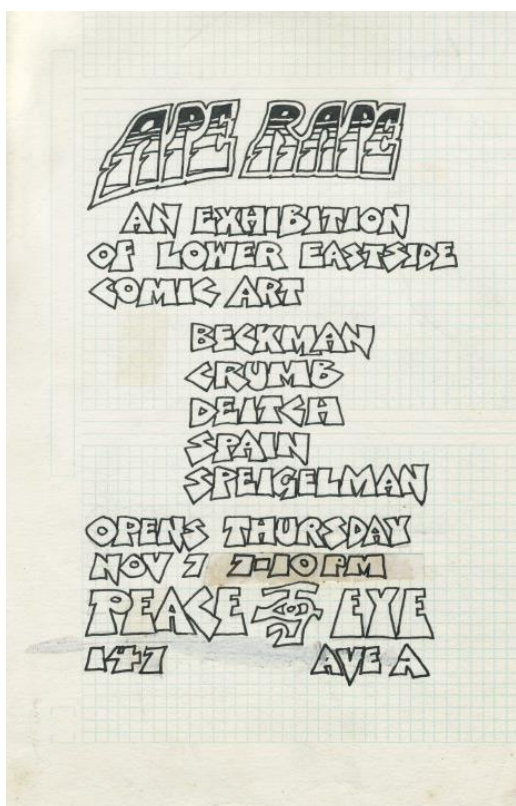 APE RAPE
AN EXHIBITION
OF LOWER EASTSIDE
COMIC ART
BECKMAN
CRUMB
DEITCH
SPAIN
SPEIGELMAN
OPENS THURSDAY
NOV 7 7-10 PM
PEACE EYE
147 AVE A